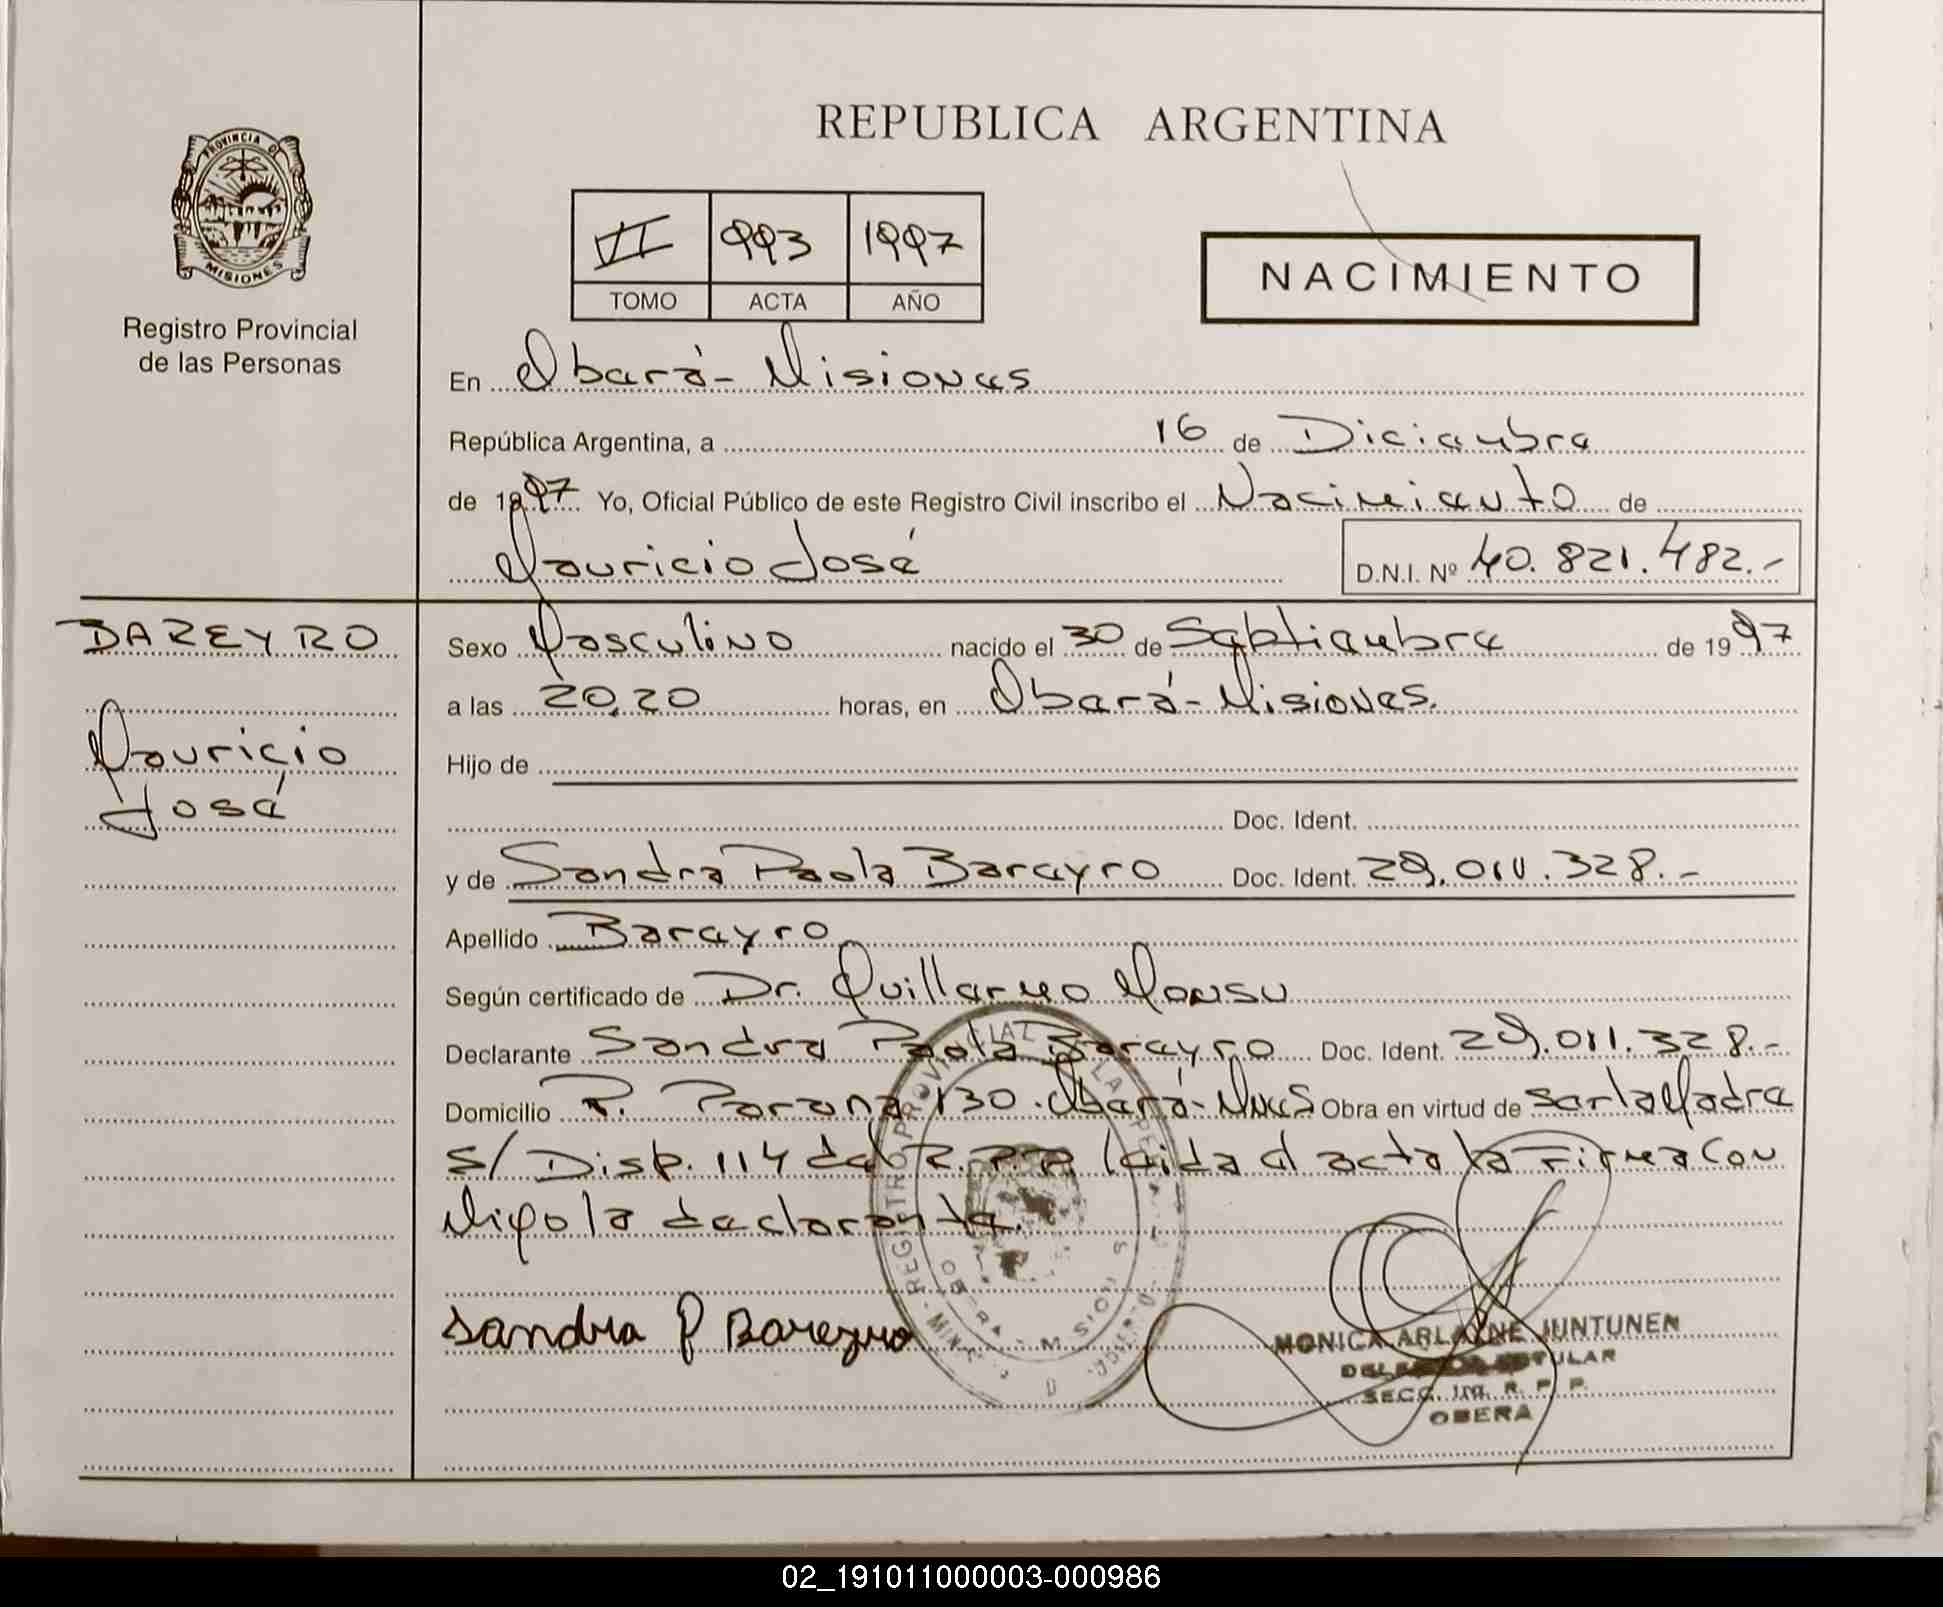 REPUBLICA ARGENTINA
PROVINCIA DE
MISIONES
Registro Provincial
de las Personas
VI 993 1997
TOMO ACTA AÑO
NACIMIENTO
En Oberá - Misiones
República Argentina, a 16 de Diciembre
de 1997 Yo, Oficial Público de este Registro Civil inscribo el Nacimiento de
Mauricio José D.N.I. Nº 40.821.482.-
BAREYRO
Mauricio
José
Sexo Masculino nacido el 30 de Septiembre de 1997
a las 20,20 horas, en Oberá - Misiones.
Hijo de
Doc. Ident.
y de Sandra Paola Bareyro Doc. Ident. 29.011.328.-
Apellido Bareyro
Según certificado de Dr. Guillermo
Declarante Sandra Paola Bareyro Doc. Ident. 29.011.328.-
Domicilio P. Paraná 130. Oberá - Mnes Obra en virtud de ser la Madre
s/ Disp. 114 del R.P.P. leida el acta la Firma Con
migo la declarante.
Sandra P Bareyro
MONICA ARLAINE JUNTUNEN
TITULAR
SECC. R. P. P.
OBERA
02_191011000003-000986